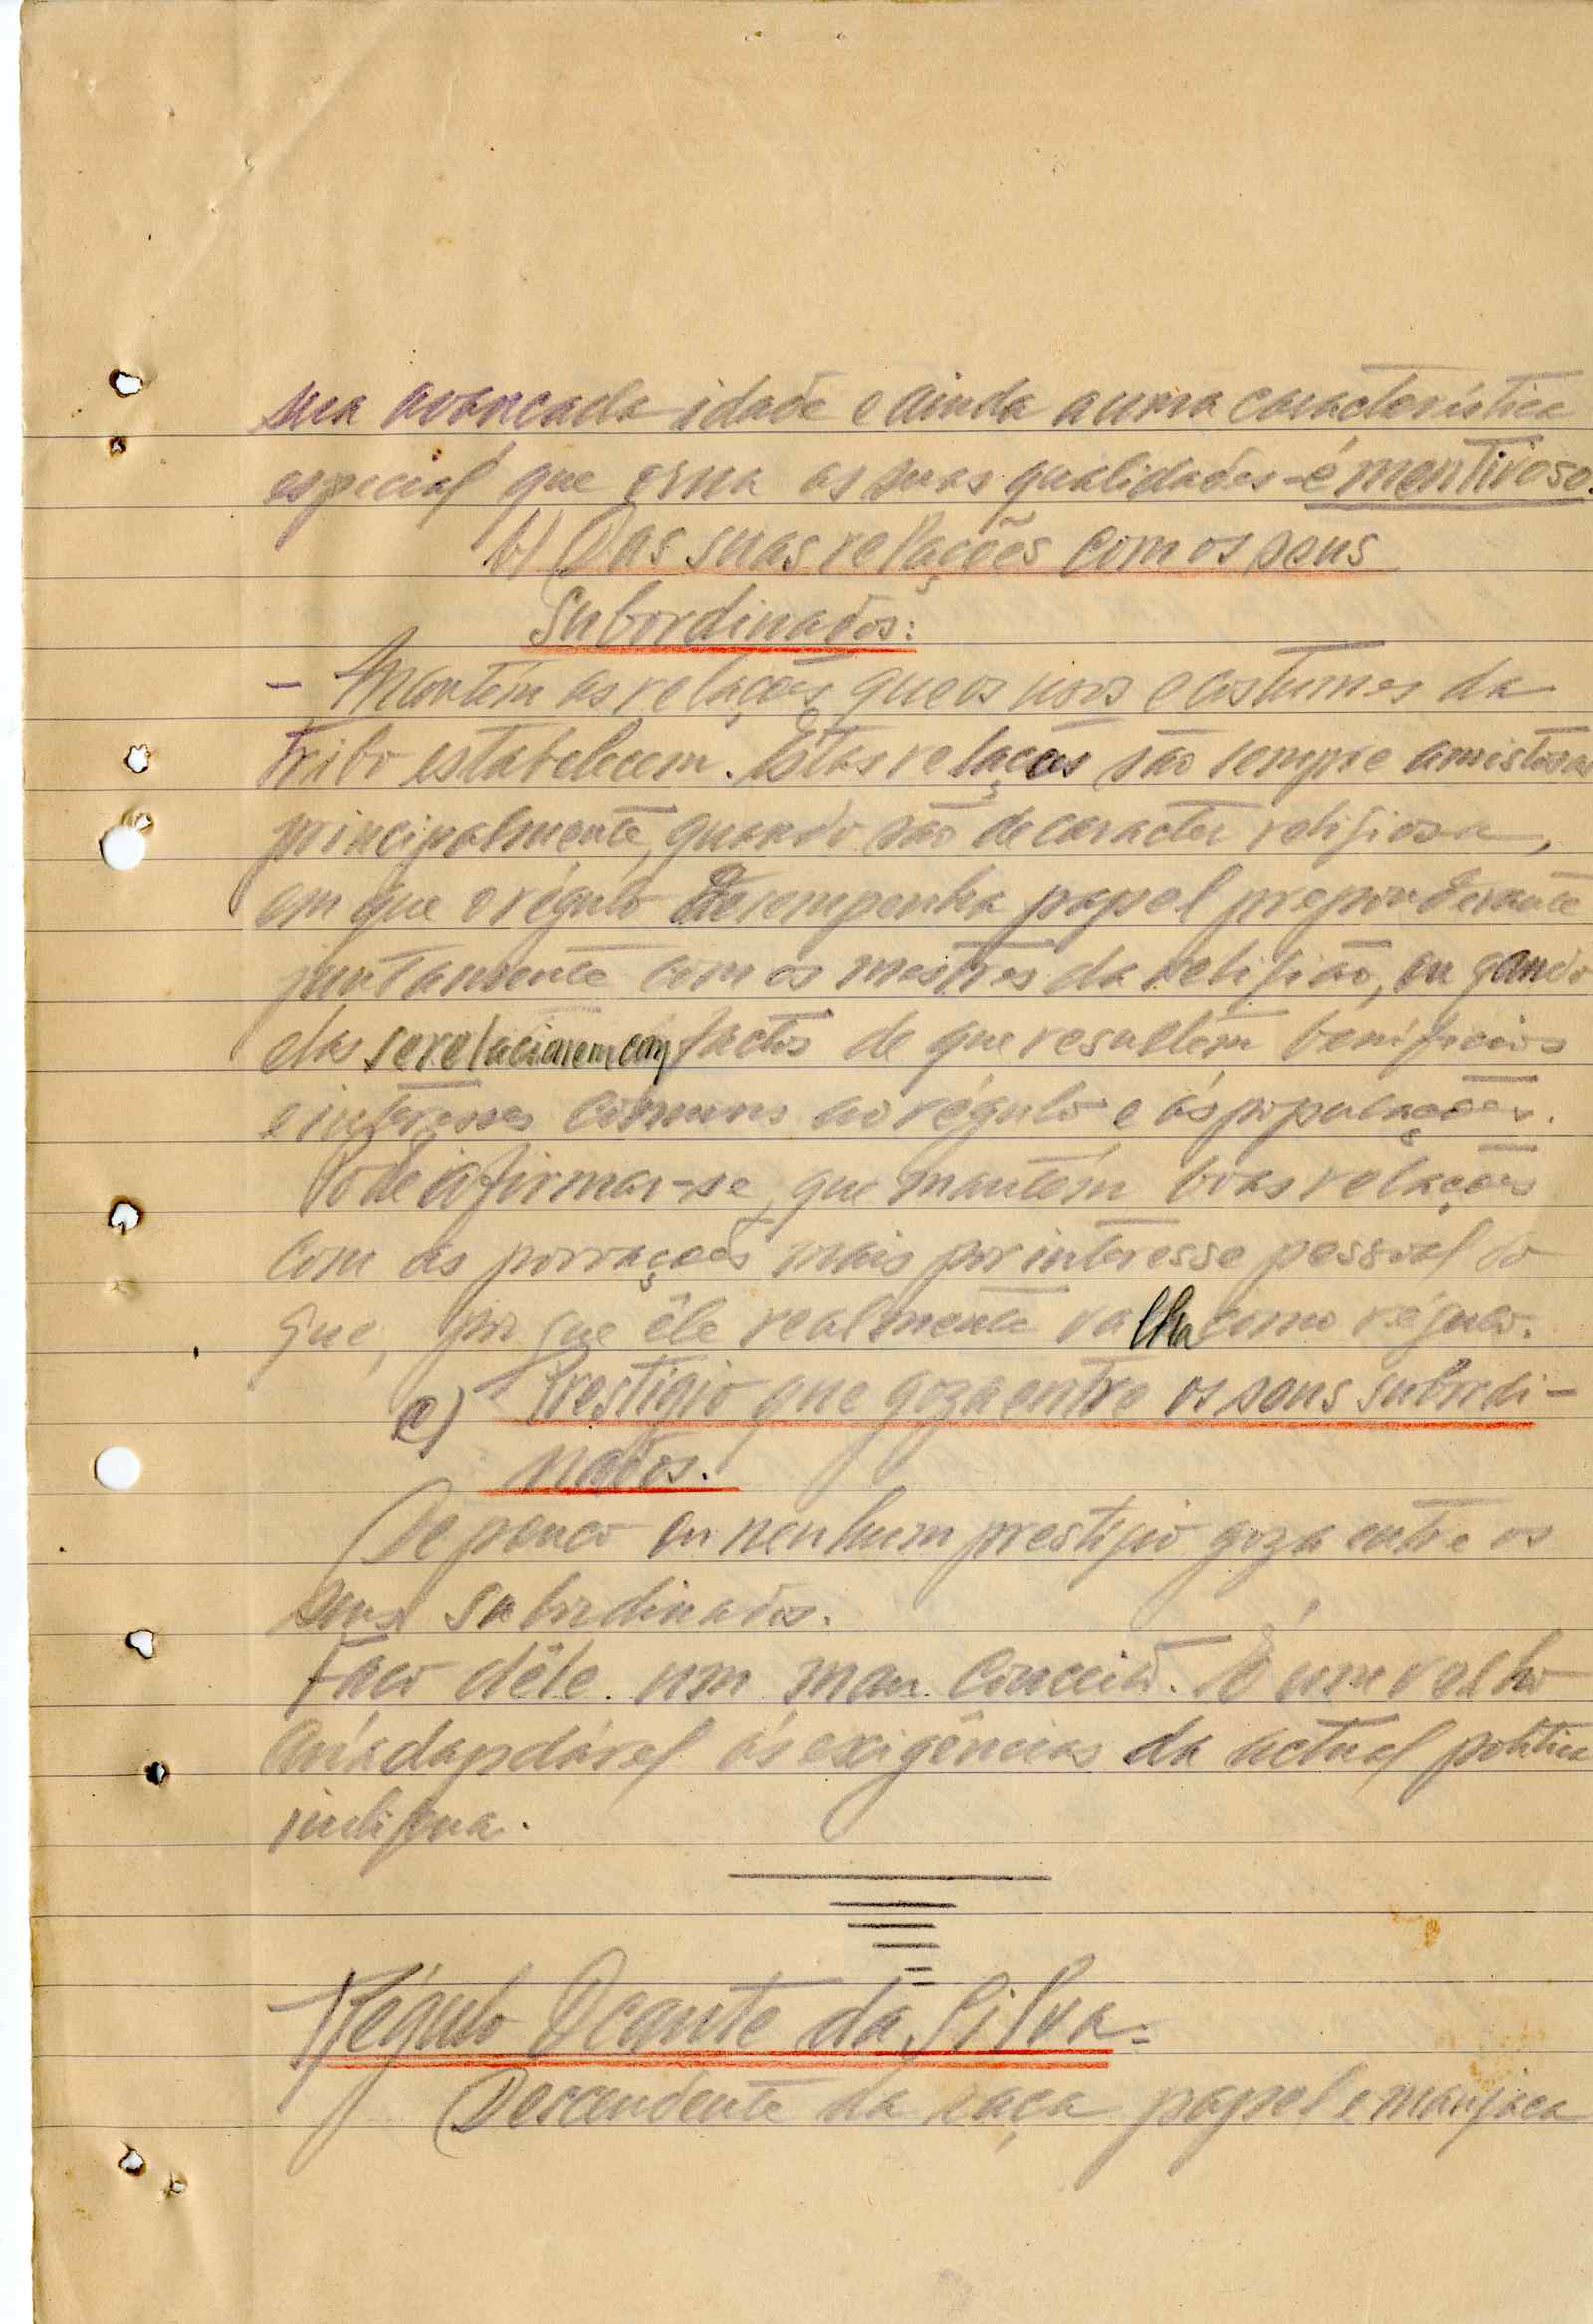 sua avançada idade e ainda a uma característica
especial que orna as suas qualidades - é mentiroso.
b) Das suas relações com os seus
Subordinados:
- Mantém as relações que os usos e costumes da
tribo estabelecem. Estas relações são sempre amistosas
principalmente, quando são de caracter religiosa,
em que o régulo desempenha papel preponderante
juntamente com os mestres da religião, ou quando
elas se relacionarem com factos de que resultem benifícios
e interesses comuns ao régulo e ás populações.
Pode afirmar-se, que mantém boas relações
com as povoações mais por interesse pessoal do
que, por que êle realmente valha como régulo.
c) Prestígio que goza entre os seus subordi-
nados.
De pouco ou nenhum prestígio goza entre os
seus subordinados.
Faço dêle um mau conceito. É um velho
ás exigências da actual politica
indigena.
Régulo da Silva=
Descendente da raça papel e manjaca